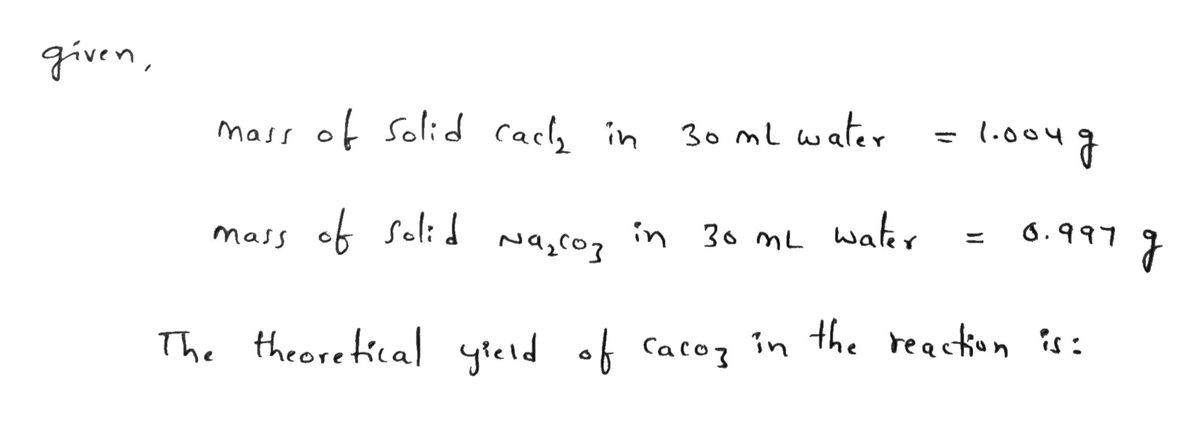 given,
mass of solid cacl₂ in 30 mL water = 1.004 g
mass of solid Na₂CO₃ in 30 mL water = 0.997 g
The theoretical yield of caco₃ in the reaction is: